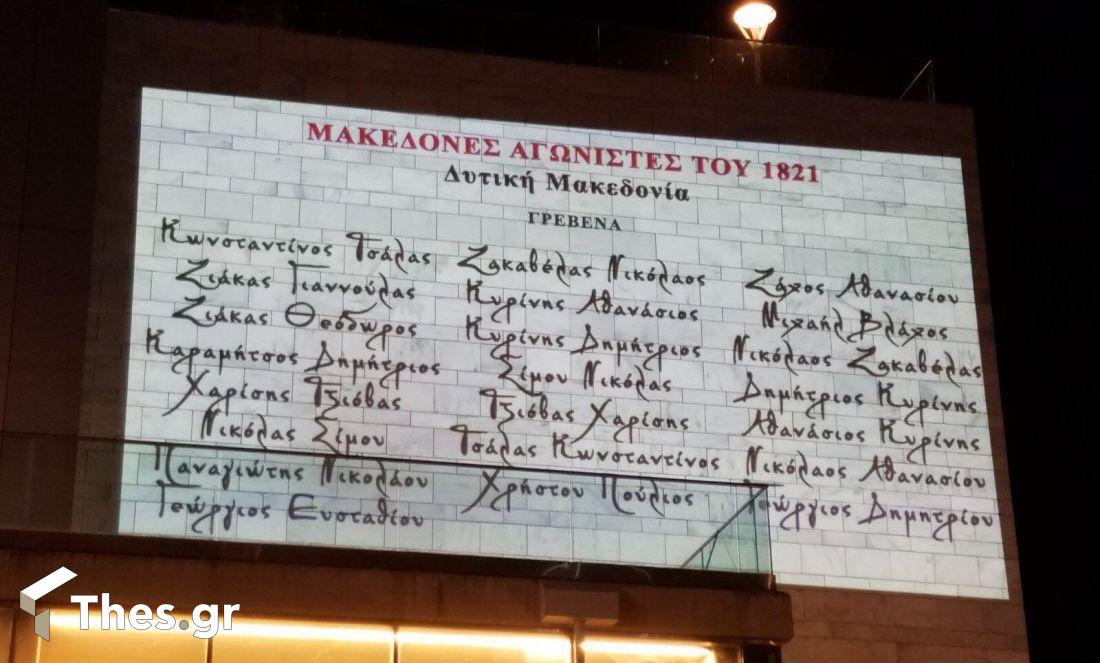 ΜΑΚΕΔΟΝΕΣ ΑΓΩΝΙΣΤΕΣ ΤΟΥ 1821
Δυτική Μακεδονία
ΓΡΕΒΕΝΑ
Κωνσταντίνος Τσάλας
Ζιάκας Γιαννούλας
Ζιάκας Θεόδωρος
Καραμήτσος Δημήτριος
Χαρίσης Τζιόβας
Νικόλας Σίμου
Παναγιώτης Νικολάου
Γεώργιος Ευσταθίου
Ζακαβέλας Νικόλαος
Κυρίνης Αθανάσιος
Κυρίνης Δημήτριος
Σίμου Νικόλας
Τζιόβας Χαρίσης
Τσάλας Κωνσταντίνος
Χρήστου Πούλιος
Ζάχος Αθανασίου
Μιχαήλ Βλάχος
Νικόλαος Ζακαβέλας
Δημήτριος Κυρίνης
Αθανάσιος Κυρίνης
Νικόλαος Αθανασίου
Γεώργιος Δημητρίου
Thes.gr